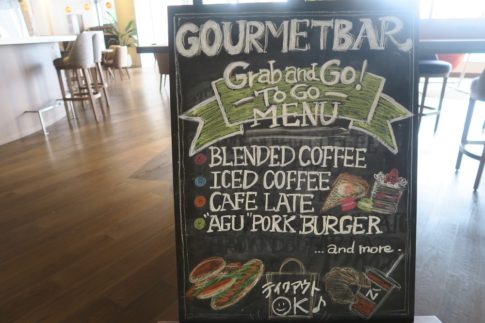 GOURMETBAR
Grab and Go!
To Go
MENU
BLENDED COFFEE
ICED COFFEE
CAFE LATE
"AGU" PORK BURGER
...and more.
テイクアウト
OK♪